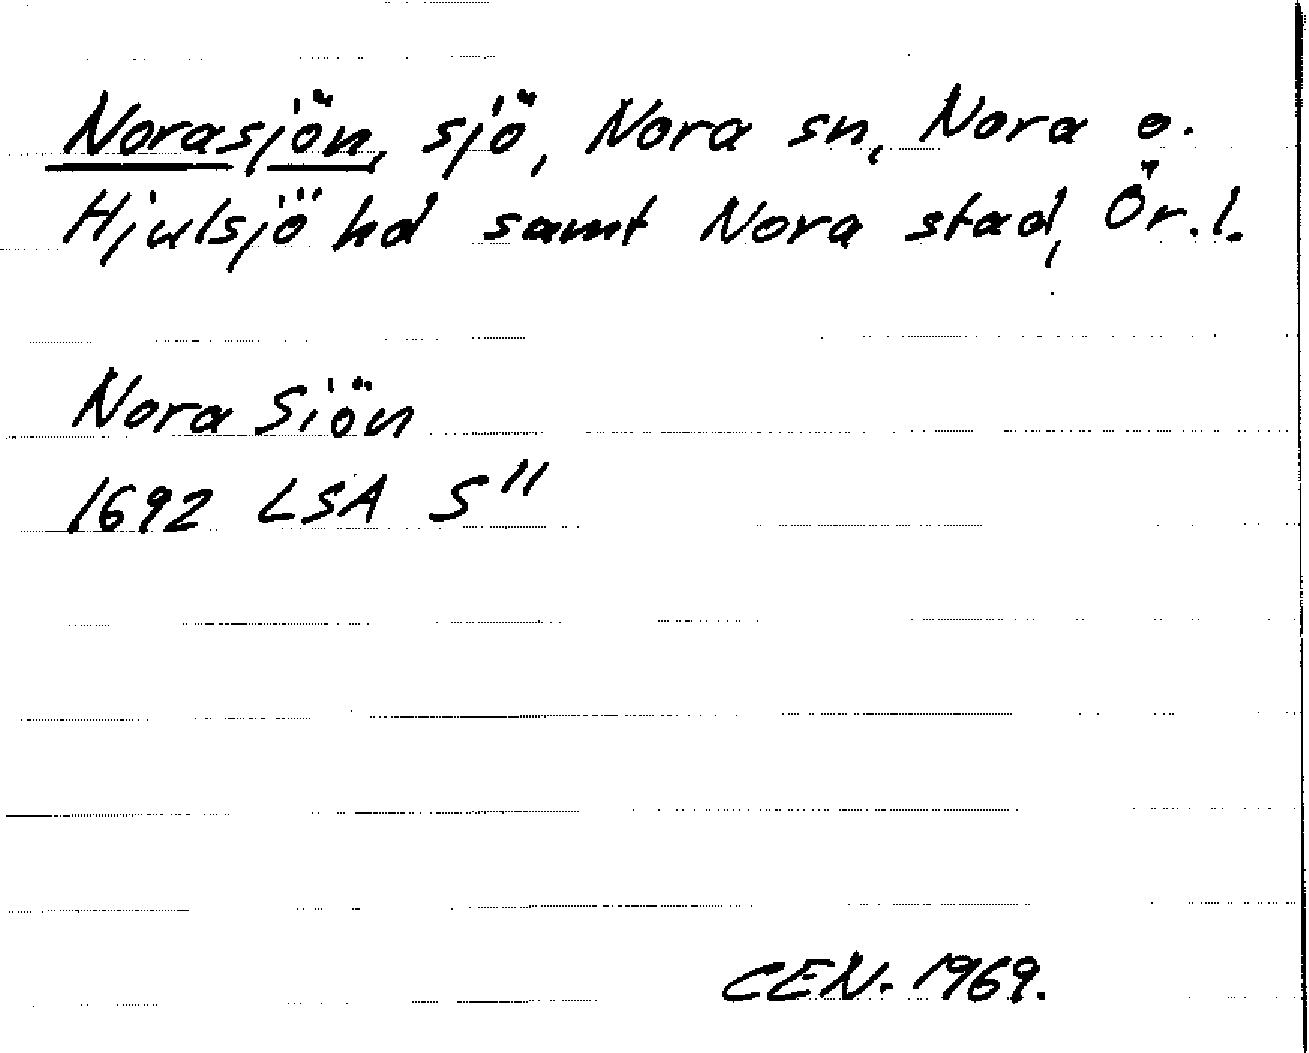 Norasjön, sjö, Nora sn, Nora o.
Hjulsjö hd samt Nora stad, Ör.l.
Nora Siön
1692 LSA S"
CEN. 1969.